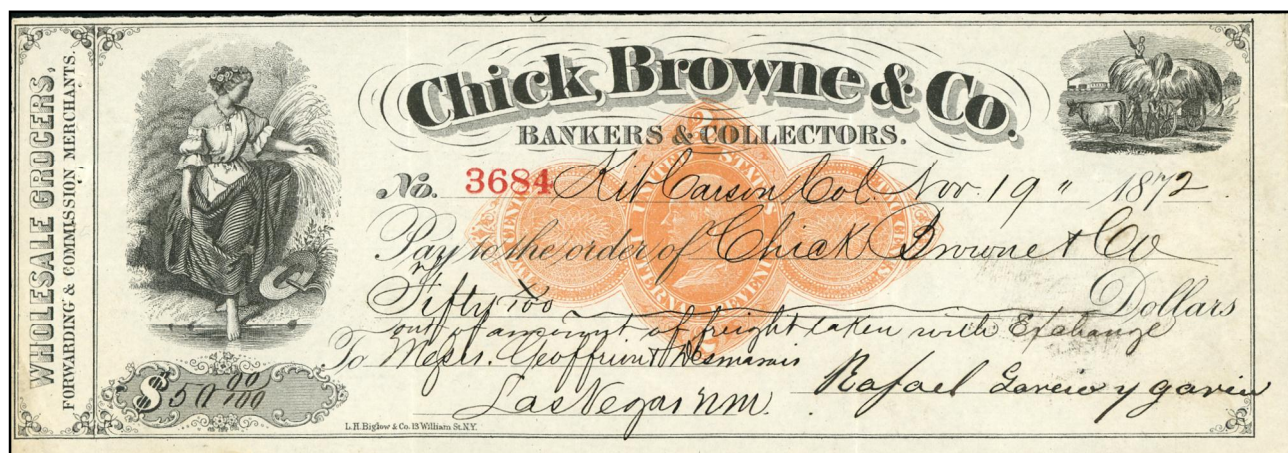 WHOLESALE GROCERS,
FORWARDING & COMMISSION MERCHANTS.
Chick, Browne & Co.
BANKERS & COLLECTORS.
No. 3684 Kit Carson Col. Nov. 19 " 1872
Pay to the order of Chick Browne & Co
Fifty Dollars
out of amount of freight taken with Exchange
To Messrs. Geoffrion & Desmarais
Las Vegas NM.
Rafael
$ 50 00/100
L.H. Biglow & Co. 13 William St. N.Y.
UNITED STATES
INTERNAL REVENUE
TWO CENTS